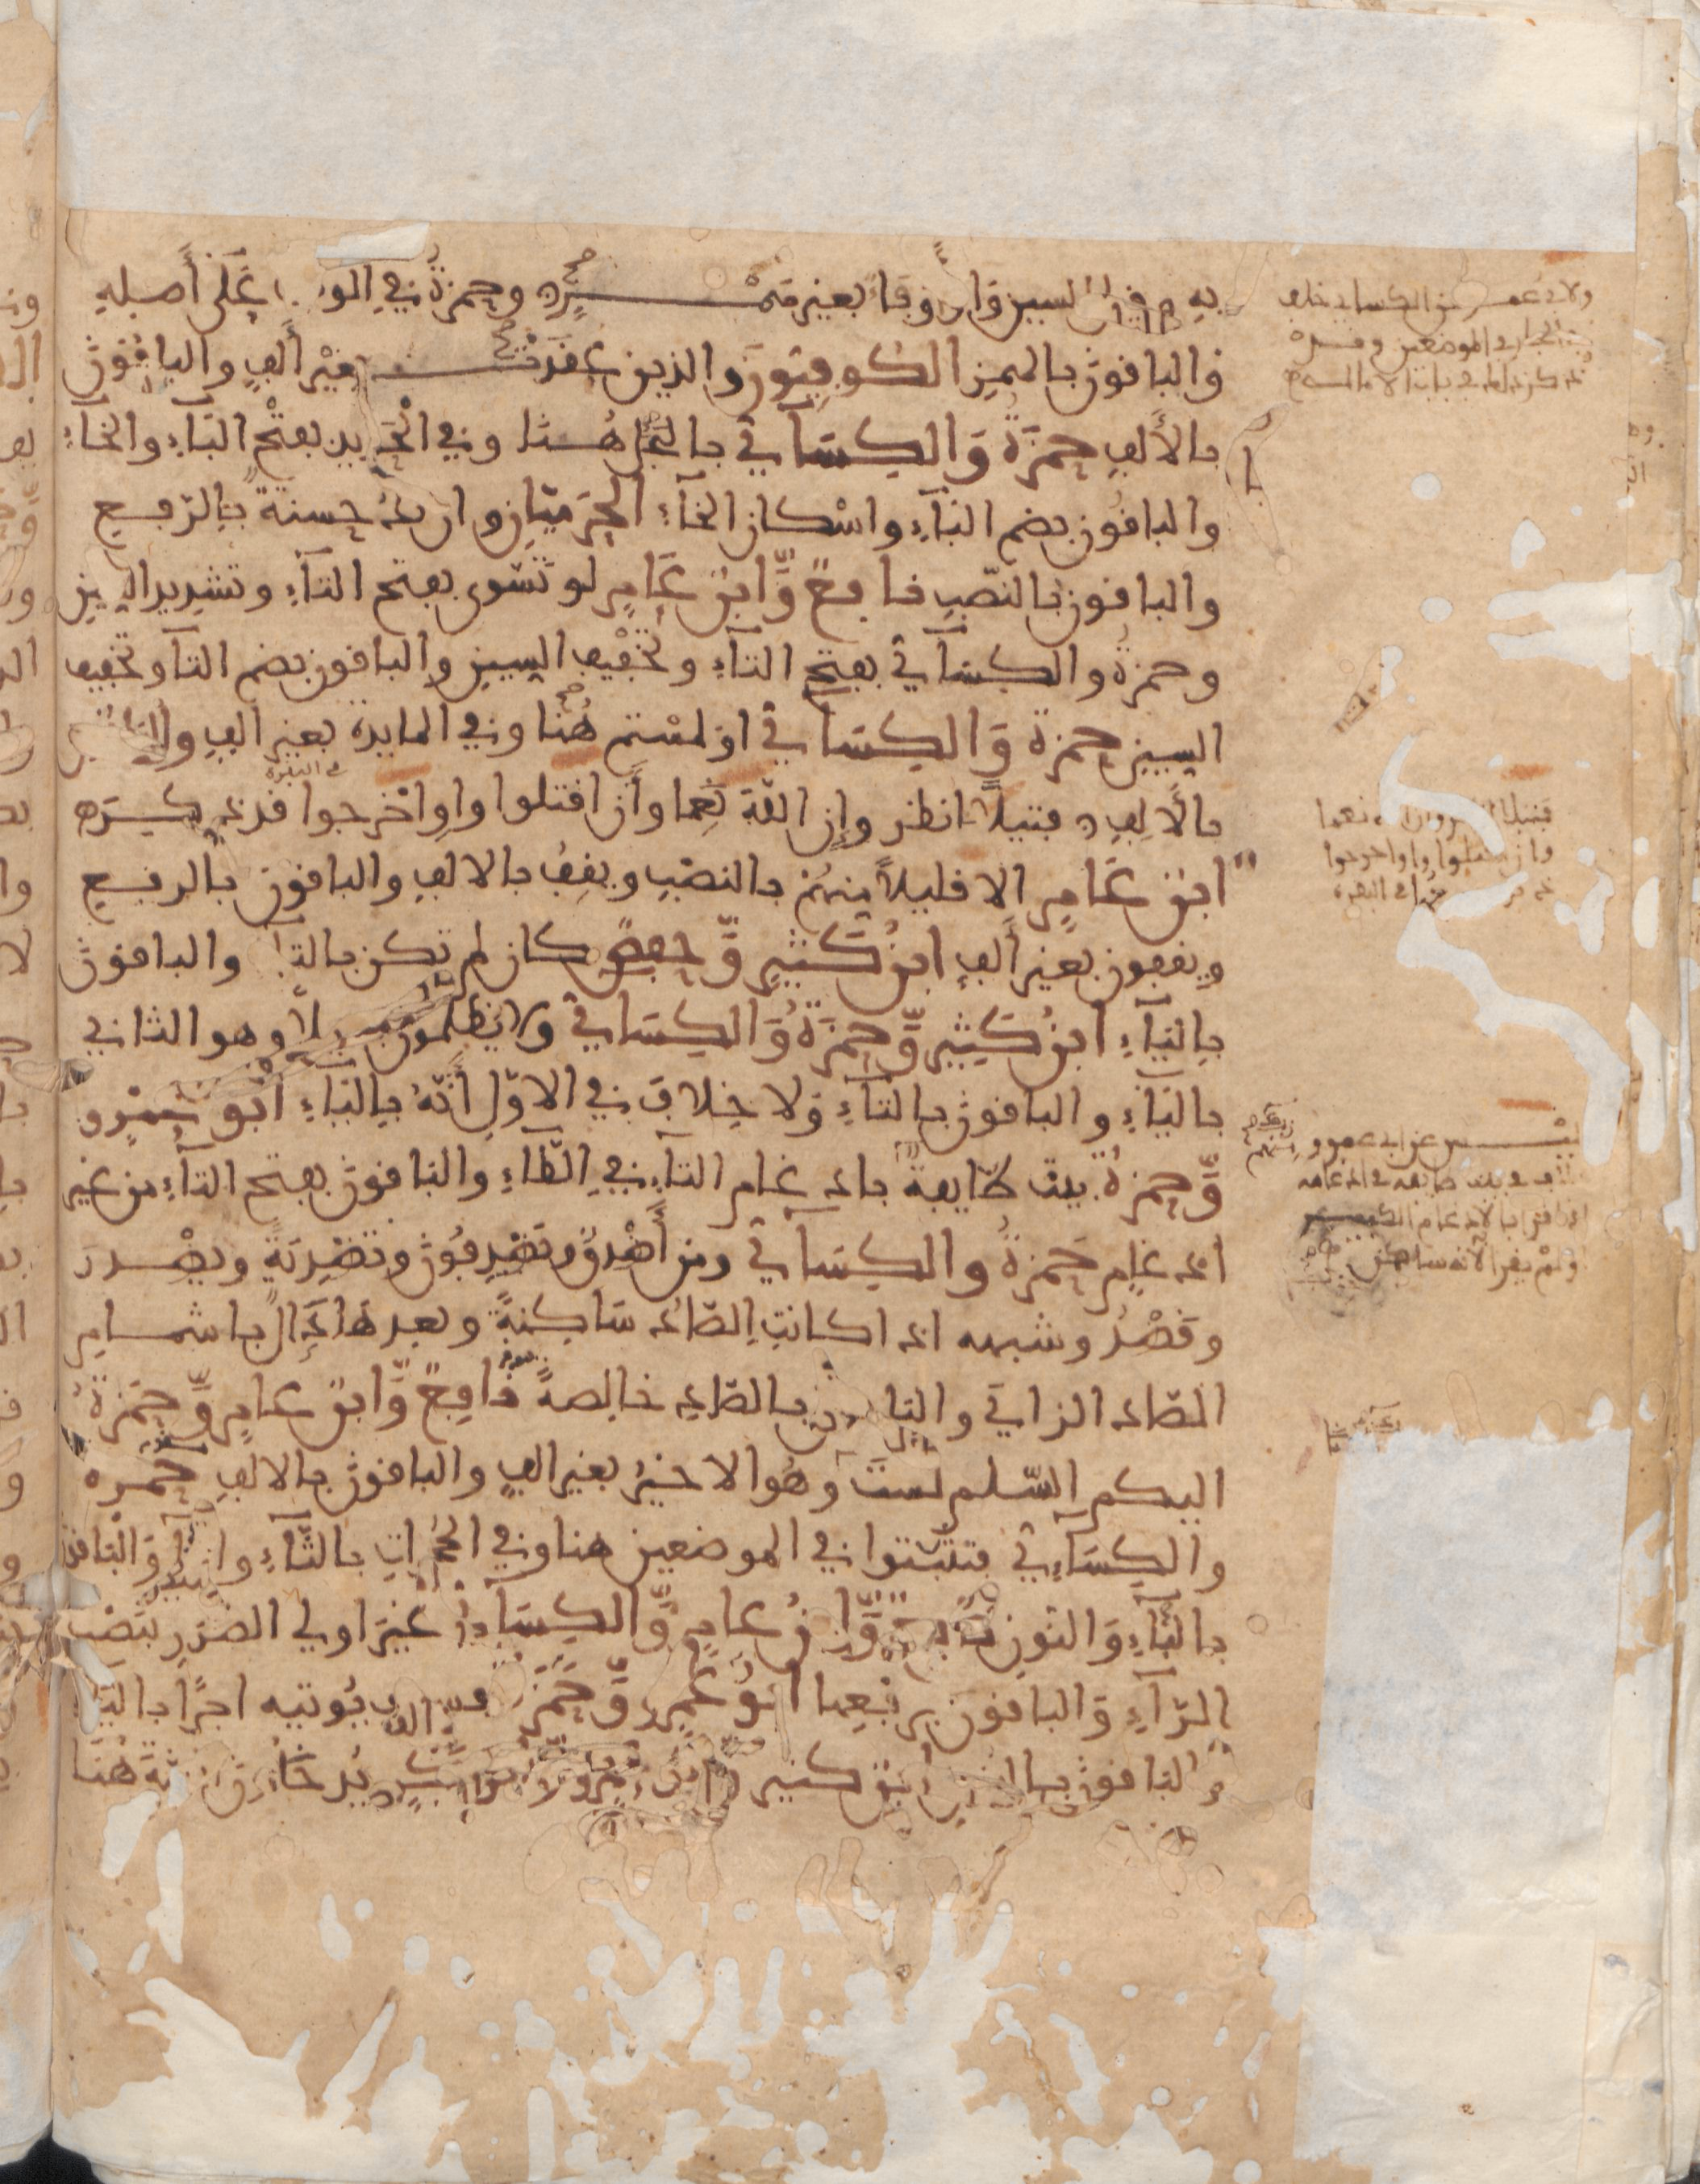 به قبل السين واو وقاء بغير همـــــزة وحمزة في الوقـ على أصله
والباقون بالهمز الكوفيون والذين عقدت بغير ألف والباقون
بالألف حمزة والكسائي بالبخل هنا وفي الحديد بفتح الباء والخاء
والباقون بضم الباء واسكان الخاء الحرميان وان تك حسنة بالرفع
والباقون بالنصب نافع وابن عامر لو تسوى بفتح التاء وتشديد السين
وحمزة والكسائي بفتح التاء وتخفيف السين والباقون بضم التا وتخفيف
السين حمزة والكسائي او لمستم هنا وفي المايدة بغير الف والباقون
بالالف فتيلا انظر وإن الله نعما وأن اقتلوا واو اخرجوا قد ذكرته
في البقرة
ابن عامر الا قليلا منهم بالنصب ويقف بالالف والباقون بالرفع
ويقفون بغير ألف ابن كثير وحفص كان لم تكن بالتا والباقون
بالياء ابن كثير وحمزة والكسائي ولا يظلمون فتيلا وهو الثاني
بالياء والباقون بالتاء ولا خلاف في الاول أنه بالياء ابو عمرو
وحمزة بيت طايفة بادغام التاء في الطاء والباقون بفتح التاء من غير
ادغام حمزة والكسائي ومن أصدق وتصدفون وتصدية ويصدر
وقصد وشبهه اذا كانت الصاد ساكنة وبعدها دال باشمام
الصاد الزاي والباقون بالصاد خالصة نافع وابن عامر وحمزة
اليكم السلم لست وهو الاخير بغير الف والباقون بالالف حمزة
والكسائي فتثبتوا في الموضعين هنا وفي الحجرات بالثاء والتاء والباقون
بالياء والنون نافع وابن عامر والكسائي غير اولي الضرر بنصب
الراء والباقون برفعها ابو عمرو وحمزة فسوف يوتيه اجرا باليا
والباقون بالنون ابن كثير وابو عمرو وابو بكر يدخلون الجنة هنا
ولابي عمر عن الكسائي خلاف
الجار في الموضعين
فتيلا انظر وان الله نعما
وان اقتلوا واو اخرجوا
في البقرة
عن ابي عمرو
في بيت طايفة في ادغامه
اقرا بالادغام الكبير